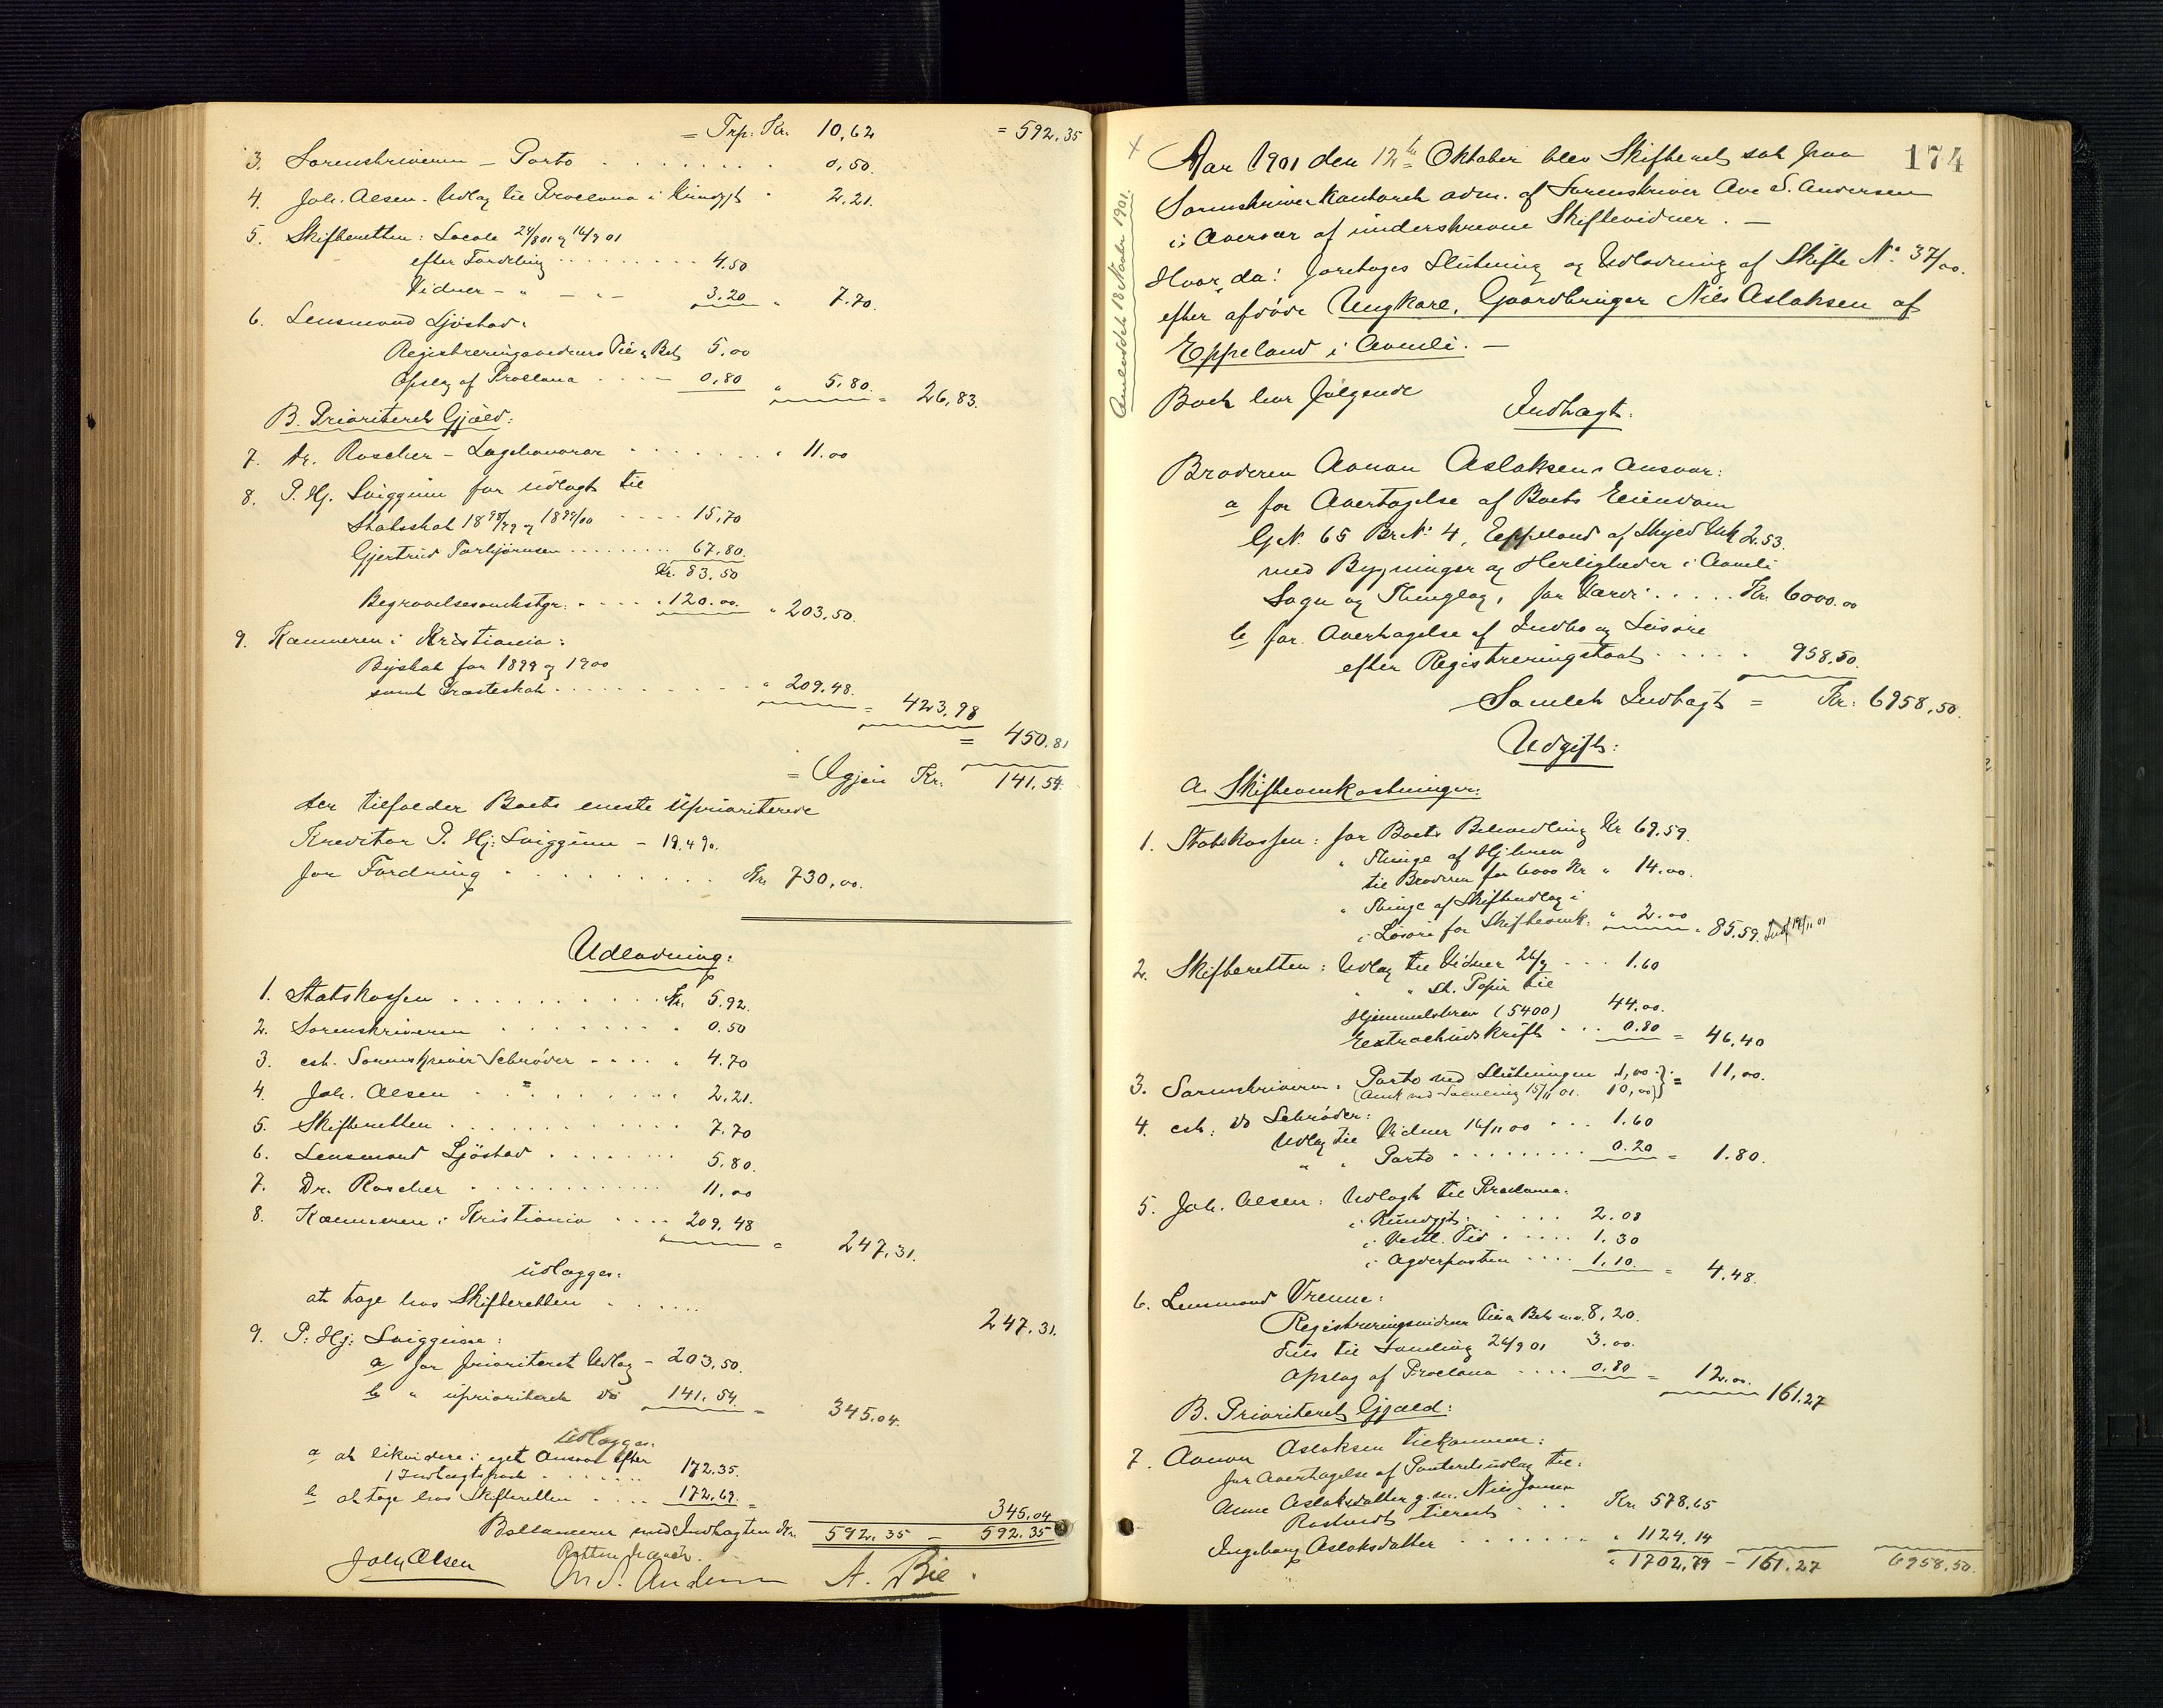 = Trp. Kr. 10,62 = 592.35
3. Sorenskriveren – Porto . . . . . . . 0,50.
4. Joh. Olsen. Udlæg til Proclama i Kundgjt. " 2.21.
5. Skifteretten: Locale 24/8 01 og 16/9 01
efter Fordeling . . . . . . . . . 4.50
Vidner – " – " – 3.20 " 7.70.
6. Lensmand Sjøstad:
Registreringsvidners Diæt & Bef. 5.00
Opslag af Proclama . . . . – 0.80 " 5.80. = 26,83.
B. Prioriteret Gjæld:
7. Dr. Roscher – Lægehonorar . . . . . . . " 11.00
8. P. Hj. Sviggum for udlagt til
Statsskat 1898/99 og 1899/00 - - - - 15,70
Gjertrud Torbjørnsen . . . . . . . . . 67.80.
Kr. 83.50
Begravelsesomkstgr. . . . . . " 120.00. " 203,50.
9. Kæmneren i Kristiania:
Byskat for 1899 og 1900
samt Præsteskat . . . . . . . . . . . " 209.48. = 423,98
= 450.81
= Igjen Kr. 141.54
der tilfalder Boets eneste Uprioriterede
Kreditor P. Hj. Sviggum – 19.4 %.
for Fordring . . . . . . . . . . Kr. 730,00.
Udlodning:
1. Statskassen . . . . . . . . . . . Kr. 5.92.
2. Sorenskriveren . . . . . . . . 0.50
3. cst. Sorenskriver Schrøder - - - - " 4.70
4. Joh. Olsen . . " . . . . . . . . 2.21.
5. Skifteretten . . . . . . . . . . . . . 7.70
6. Lensmand Sjøstad . . . . . . . . 5.80.
7. Dr. Roscher . . . . . . . . . . . . 11.00
8. Kæmneren i Kristiania . . . . 209.48 = 247.31.
udlægges:
at tage hos Skifteretten . . . . . . 247.31.
9. P. Hj. Sviggum:
a for prioriteret Udlæg – 203,50.
b " uprioriteret do 141.54. = 345.04.
udlægges:
a at likvidere i eget Ansvar efter
1 Indtægtspost . . . . . . . 172.35.
b at tage hos Skifteretten . . . . 172.69. = 345.04
Ballancerer med Indtægten Kr. 592.35 – 592.35
Joh. Olsen Retten hævet. A. Bie.
Ove S. Andersen
174
Aar 1901 den 12te Oktober blev Skifteret sat paa
Sorenskriverkontoret adm. af Sorenskriver Ove S. Andersen
i Overvær af underskrevne Skiftevidner. –
Hvor da: foretoges Slutning og Udlodning af Skifte No 37/00.
efter afdøde Ungkarl, Gaardbruger Nils Aslaksen af
Eppeland i Aamli. –
Boet har følgende
Indtægt:
Broderen Aanon Aslaksens Ansvar:
a for Overtagelse af Boets Eiendom
G.N. 65 Br.N. 4, Eppeland af Skyld Mk 2.53.
med Bygninger og Herligheder i Aamli
Sogn og Thinglag, for Værdi . . . . . Kr. 6000.00
b for Overtagelse af Indbo og Løsøre
efter Registreringstaxt . . . . . 958.50.
Samlet Indtægt = Kr. 6958,50.
Udgift:
A. Skifteomkostninger:
1. Statskassen: for Boets Behandling Kr 69.59.
" Thingl. af Hj.brev
til Broderen for 6000 Kr " 14.00.
" Thingl. af Skifteudlæg i
i Løsøre for Skifteomk. " 2.00 " 85,59.
2. Skifteretten: Udlæg til Vidner 26/9 - - - 1.60
" " St. Papir til
Hjemmelsbrev (5400) 44.00.
Extractudskrift . . . 0.80 = 46,40
3. Sorenskriveren: Porto ved Slutningen 1,00 } = 11,00.
(Omk ved Samling 15/11 01. 10,00)
4. cst. do Schrøder:
Udlæg til Vidner 16/11 00 . . . 1.60
" " Porto . . . . . . . . . 0.20 = 1.80.
5. Joh. Olsen: Udlagt til Proclama:
i Kundgjt. . . . . . 2.08
i Vestl. Tid . . . . . 1.30
i Agderposten . . . . 1.10. = 4.48.
6. Lensmand Vrenne:
Registreringsvidner Diæt & Bef. m.v. 8,20.
Diæt til Samling 26/9 01 3.00.
Opslag af Proclama . . . . 0.80 = 12.00. 161.27
B. Prioriteret Gjæld:
7. Aanon Aslaksen tilkommer:
for Overtagelse af Panteretsudlæg til:
Anne Aslaksdatter g. m. Nils Jensen
Rostvedt tilrest . . . Kr. 578.65
Ingeborg Aslaksdatter . . . . . . . " 1124,14
" 1702,79 – 161.27 6958,50.